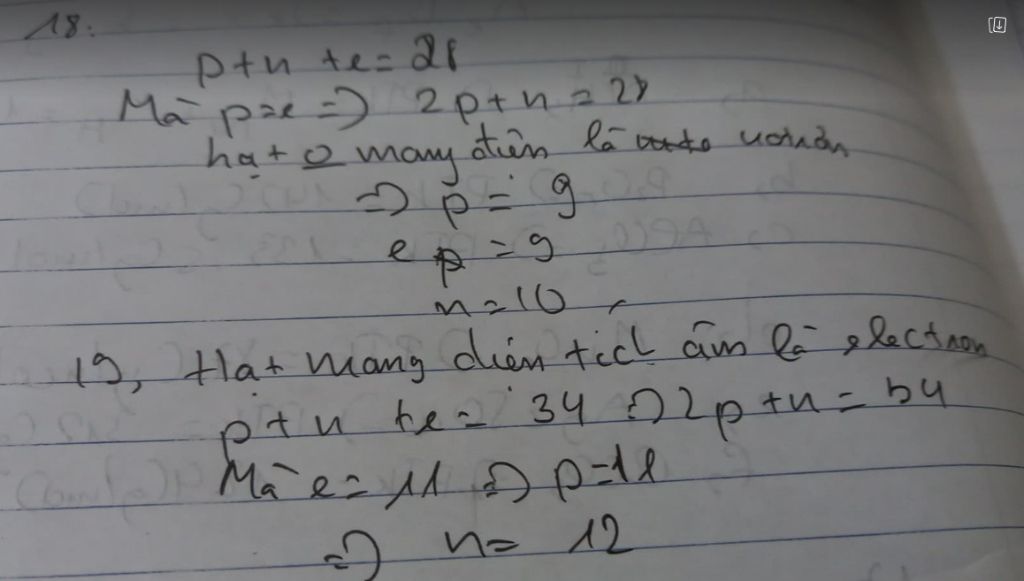 18.
p+n +e= 28
Mà p=e => 2p+n = 28
hạt o mang điện là nơtron
=> p = 9
e = 9
n=10
19, Hạt mang điện tích âm là electron
p+n +e = 34 => 2p+n = 34
Mà e = 11 => p=11
=> n= 12